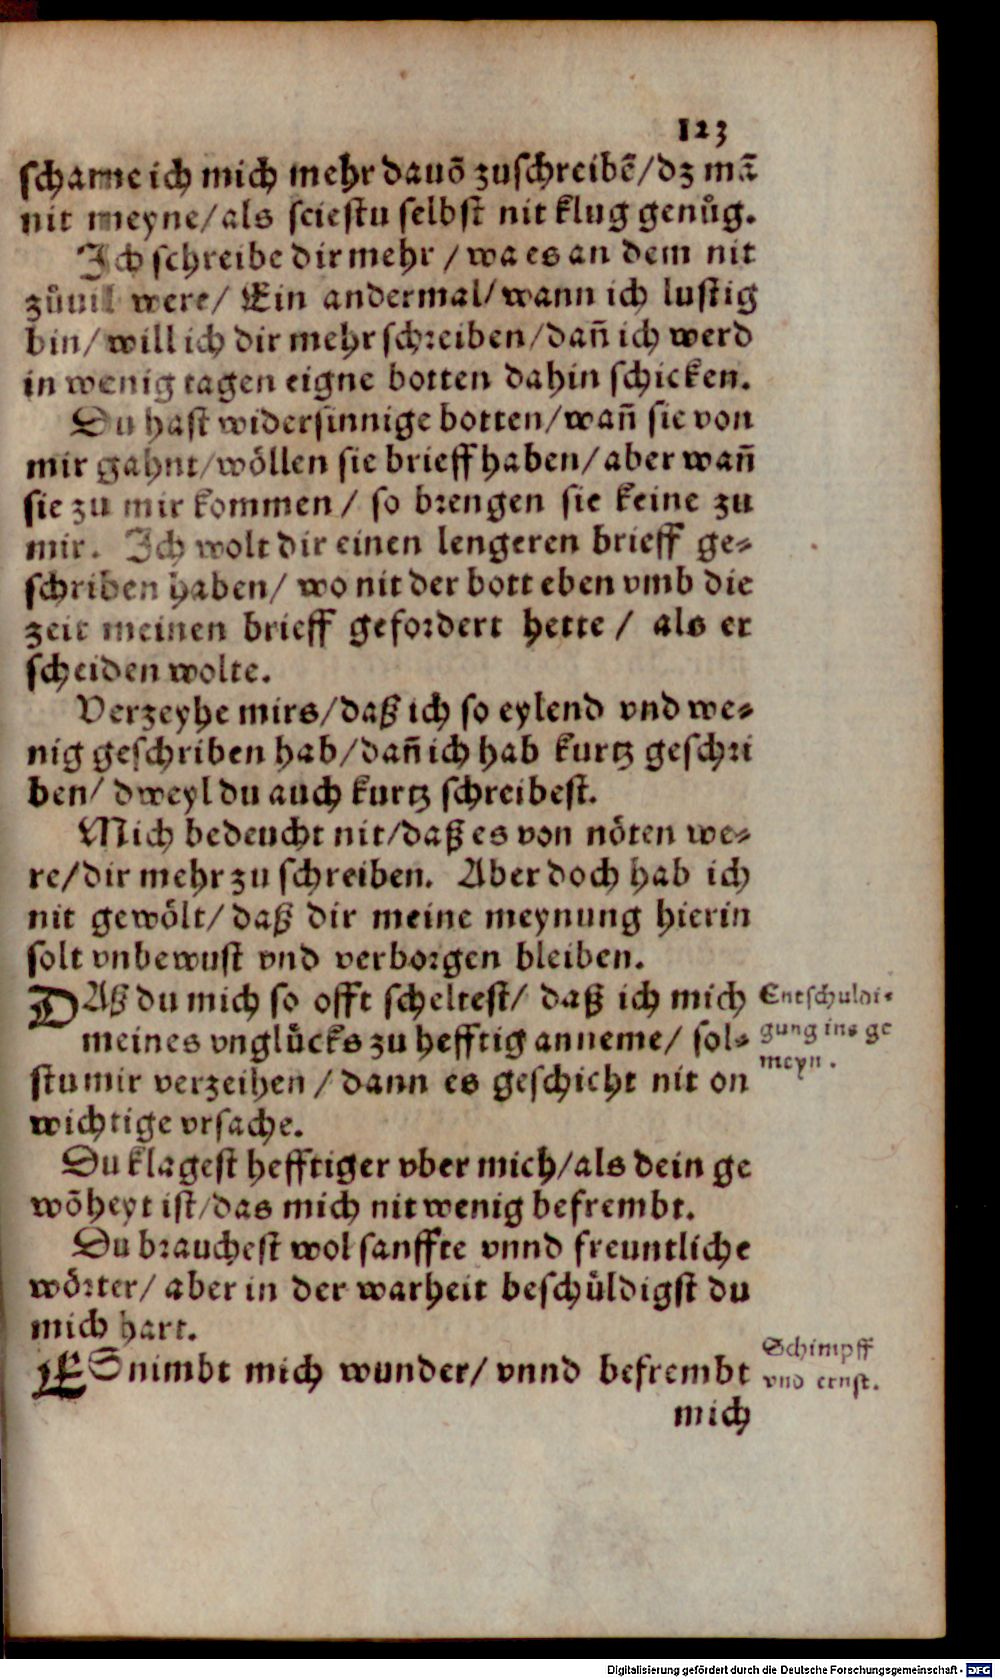 123
schame ich mich mehr dauõ zuschreibẽ/dz mã
nit meyne/als seiestu selbst nit klug genůg.
Ich schreibe dir mehr / wa es an dem nit
zůuil were/ Ein andermal/wann ich lustig
bin/ will ich dir mehr schreiben/dañ ich werd
in wenig tagen eigne botten dahin schicken.
Du hast widersinnige botten/wañ sie von
mir gahnt/wöllen sie brieff haben/aber wañ
sie zu mir kommen / so brengen sie keine zu
mir. Ich wolt dir einen lengeren brieff ge-
schriben haben/ wo nit der bott eben vmb die
zeit meinen brieff gefordert hette / als er
scheiden wolte.
Verzeyhe mirs/daß ich so eylend vnd we-
nig geschriben hab/dañ ich hab kurtz geschri
ben/ dweyl du auch kurtz schreibest.
Mich bedeucht nit/daß es von nöten we-
re/dir mehr zu schreiben. Aber doch hab ich
nit gewölt/ daß dir meine meynung hierin
solt vnbewust vnd verborgen bleiben.
DAß du mich so offt scheltest/ daß ich mich
meines vnglücks zu hefftig anneme/ sol-
stu mir verzeihen / dann es geschicht nit on
wichtige vrsache.
Entschuldi-
gung ins ge
meyn.
Du klagest hefftiger vber mich/als dein ge
wõheyt ist/das mich nit wenig befrembt.
Du brauchest wol sanffte vnnd freuntliche
wörter/ aber in der warheit beschüldigst du
mich hart.
ES nimbt mich wunder/ vnnd befrembt
Schimpff
vnd ernst.
mich
Digitalisierung gefördert durch die Deutsche Forschungsgemeinschaft - DFG